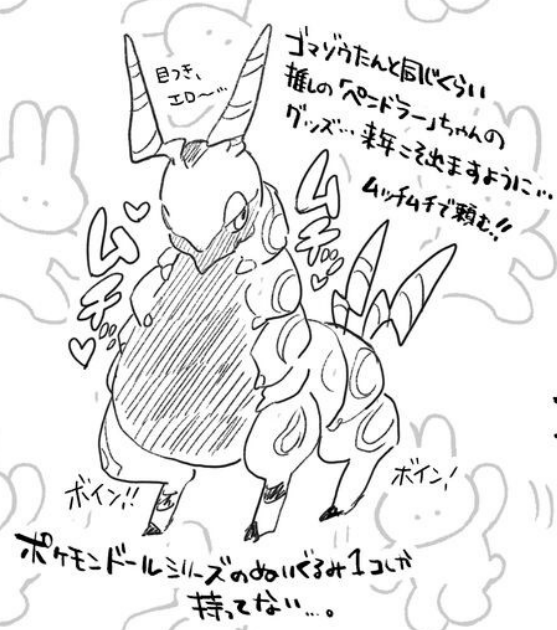 ゴマゾウたんと同じくらい
推しの「ペンドラー」ちゃんの
グッズ…来年こそ出ますように…
ムッチムチで頼む!!
目つき、
エロ〜…
ムチッ♡
ムチッ♡
ボイン!!
ボイン!
ポケモンドールシリーズのぬいぐるみ1コしか
持ってない…。